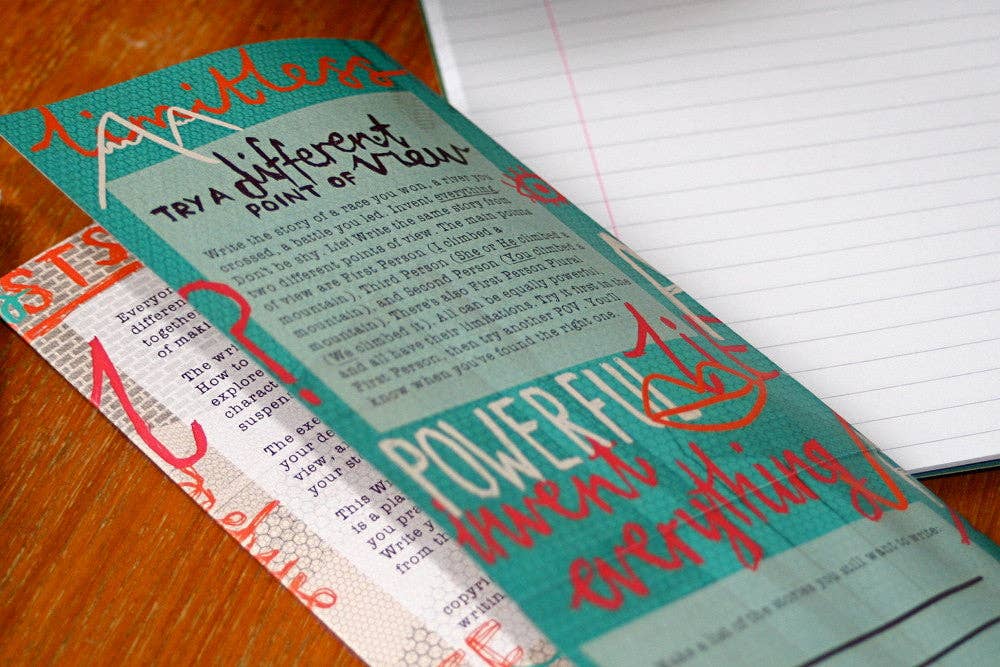 limitless
TRY A different
POINT OF view
Write the story of a race you won, a river you
crossed, a battle you led. Invent everything.
Don't be shy. Lie! Write the same story from
two different points of view. The main points
of view are First Person (I climbed a
mountain), Third Person (She or He climbed a
mountain), and Second Person (You climbed a
mountain). There's also First Person Plural
(We climbed it). All can be equally powerful,
and all have their limitations. Try it first in the
First Person, then try another POV. You'll
know when you've found the right one.
POWERFUL
invent
everything
Make a list of the stories you still want to write:
STS
Everyon
differen
togethe
of maki
The wri
How to
explore
charact
suspen
The exe
your de
view, a
your st
This Wr
is a pla
you pra
Write y
from th
copyri
writin